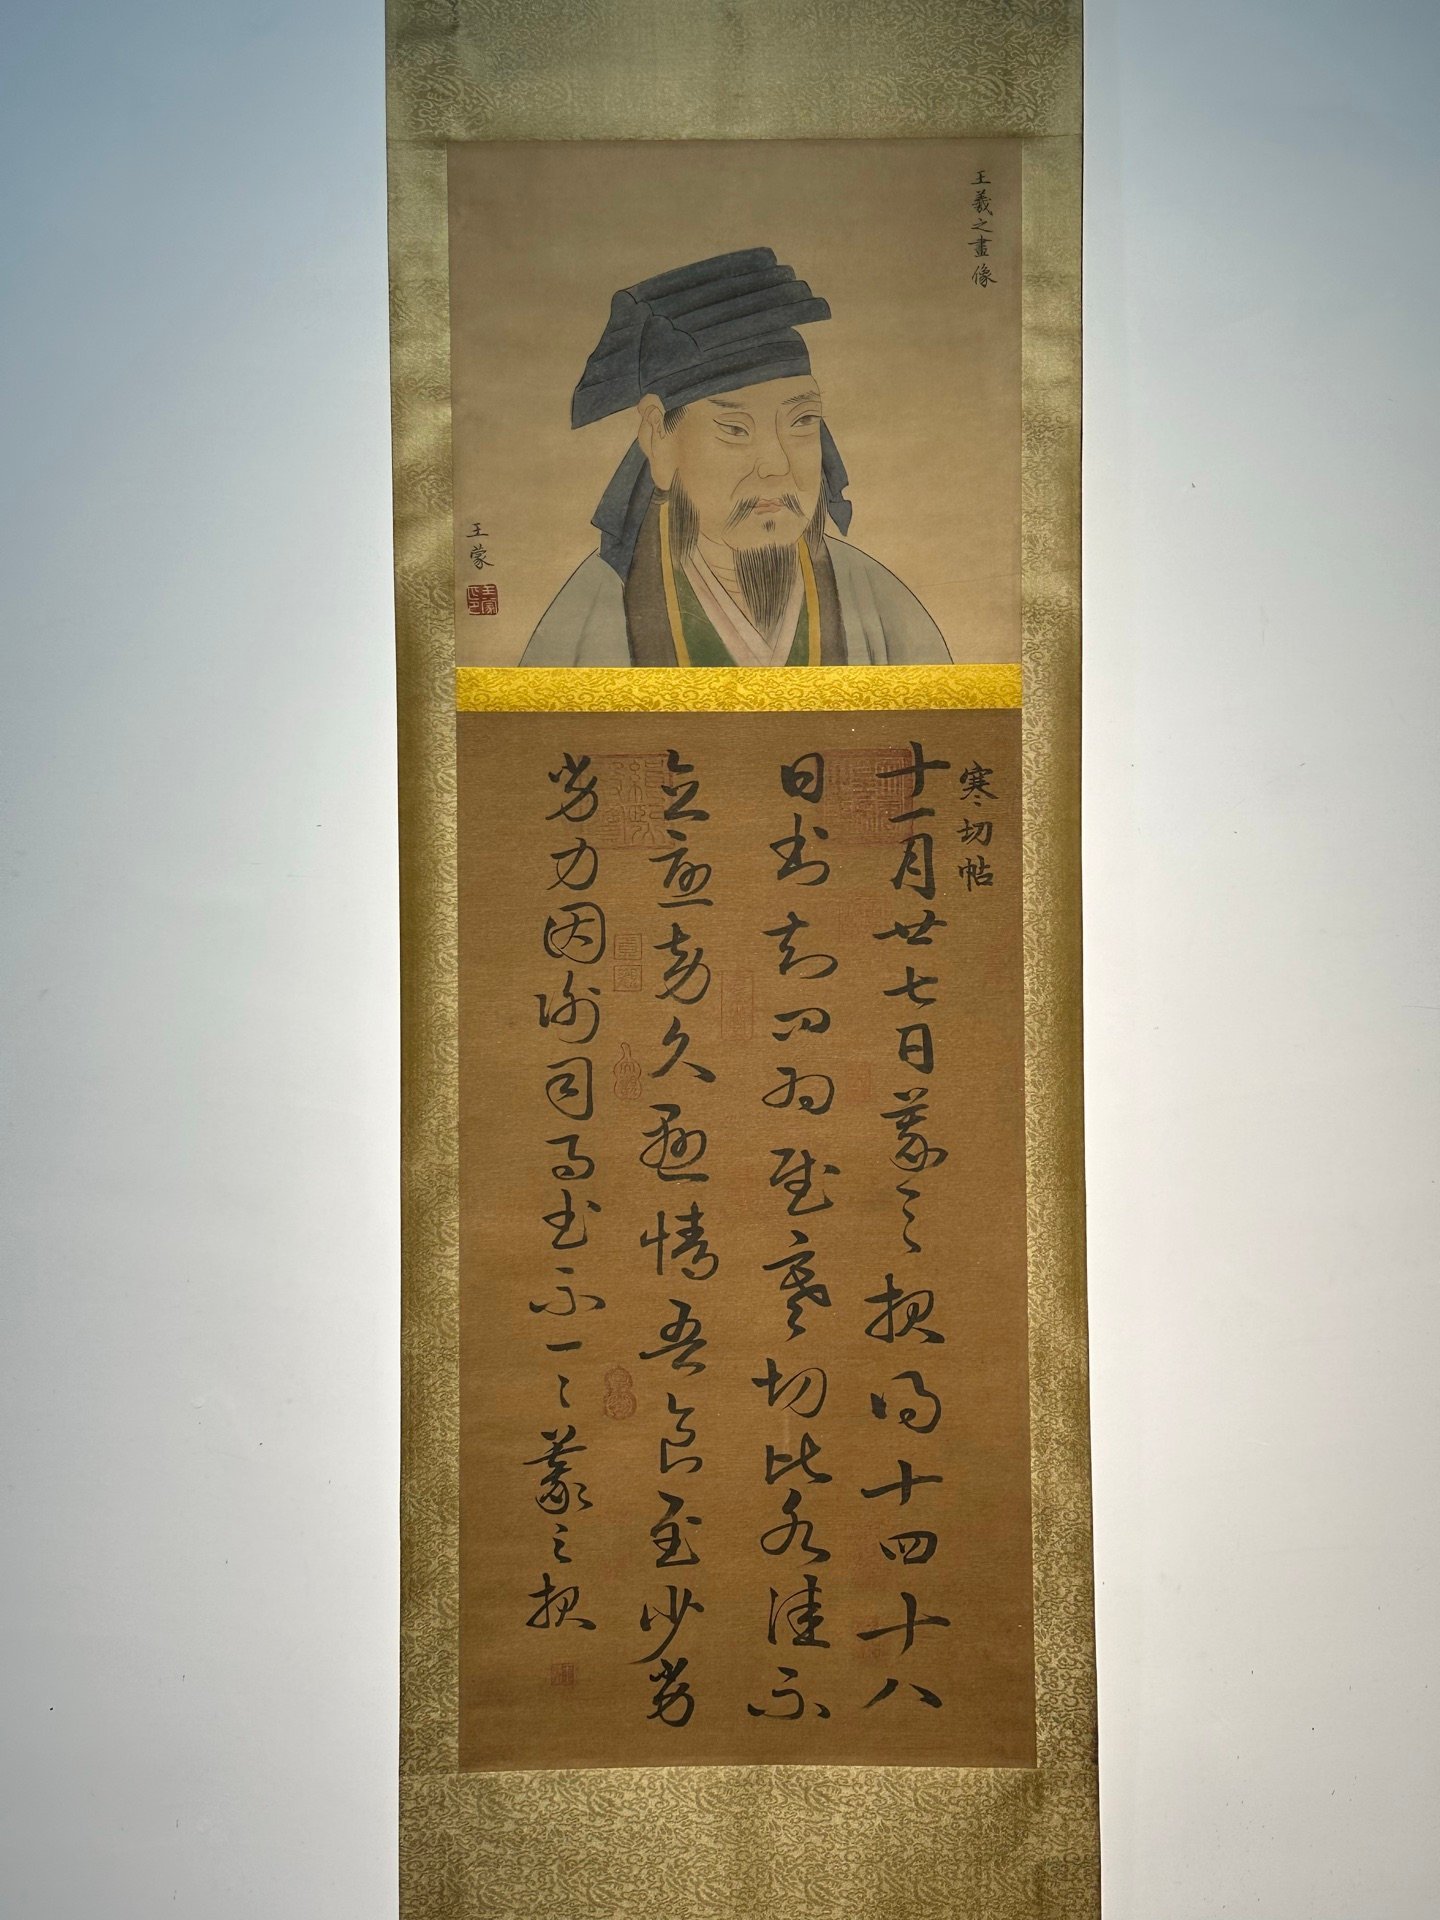 王羲之畫像
王蒙
寒切帖
十一月廿七日羲之報得十四十八
日書知問為慰寒切比各佳不
念憂勞久懸情吾食至少劣
劣力因謝司馬書不一一羲之報